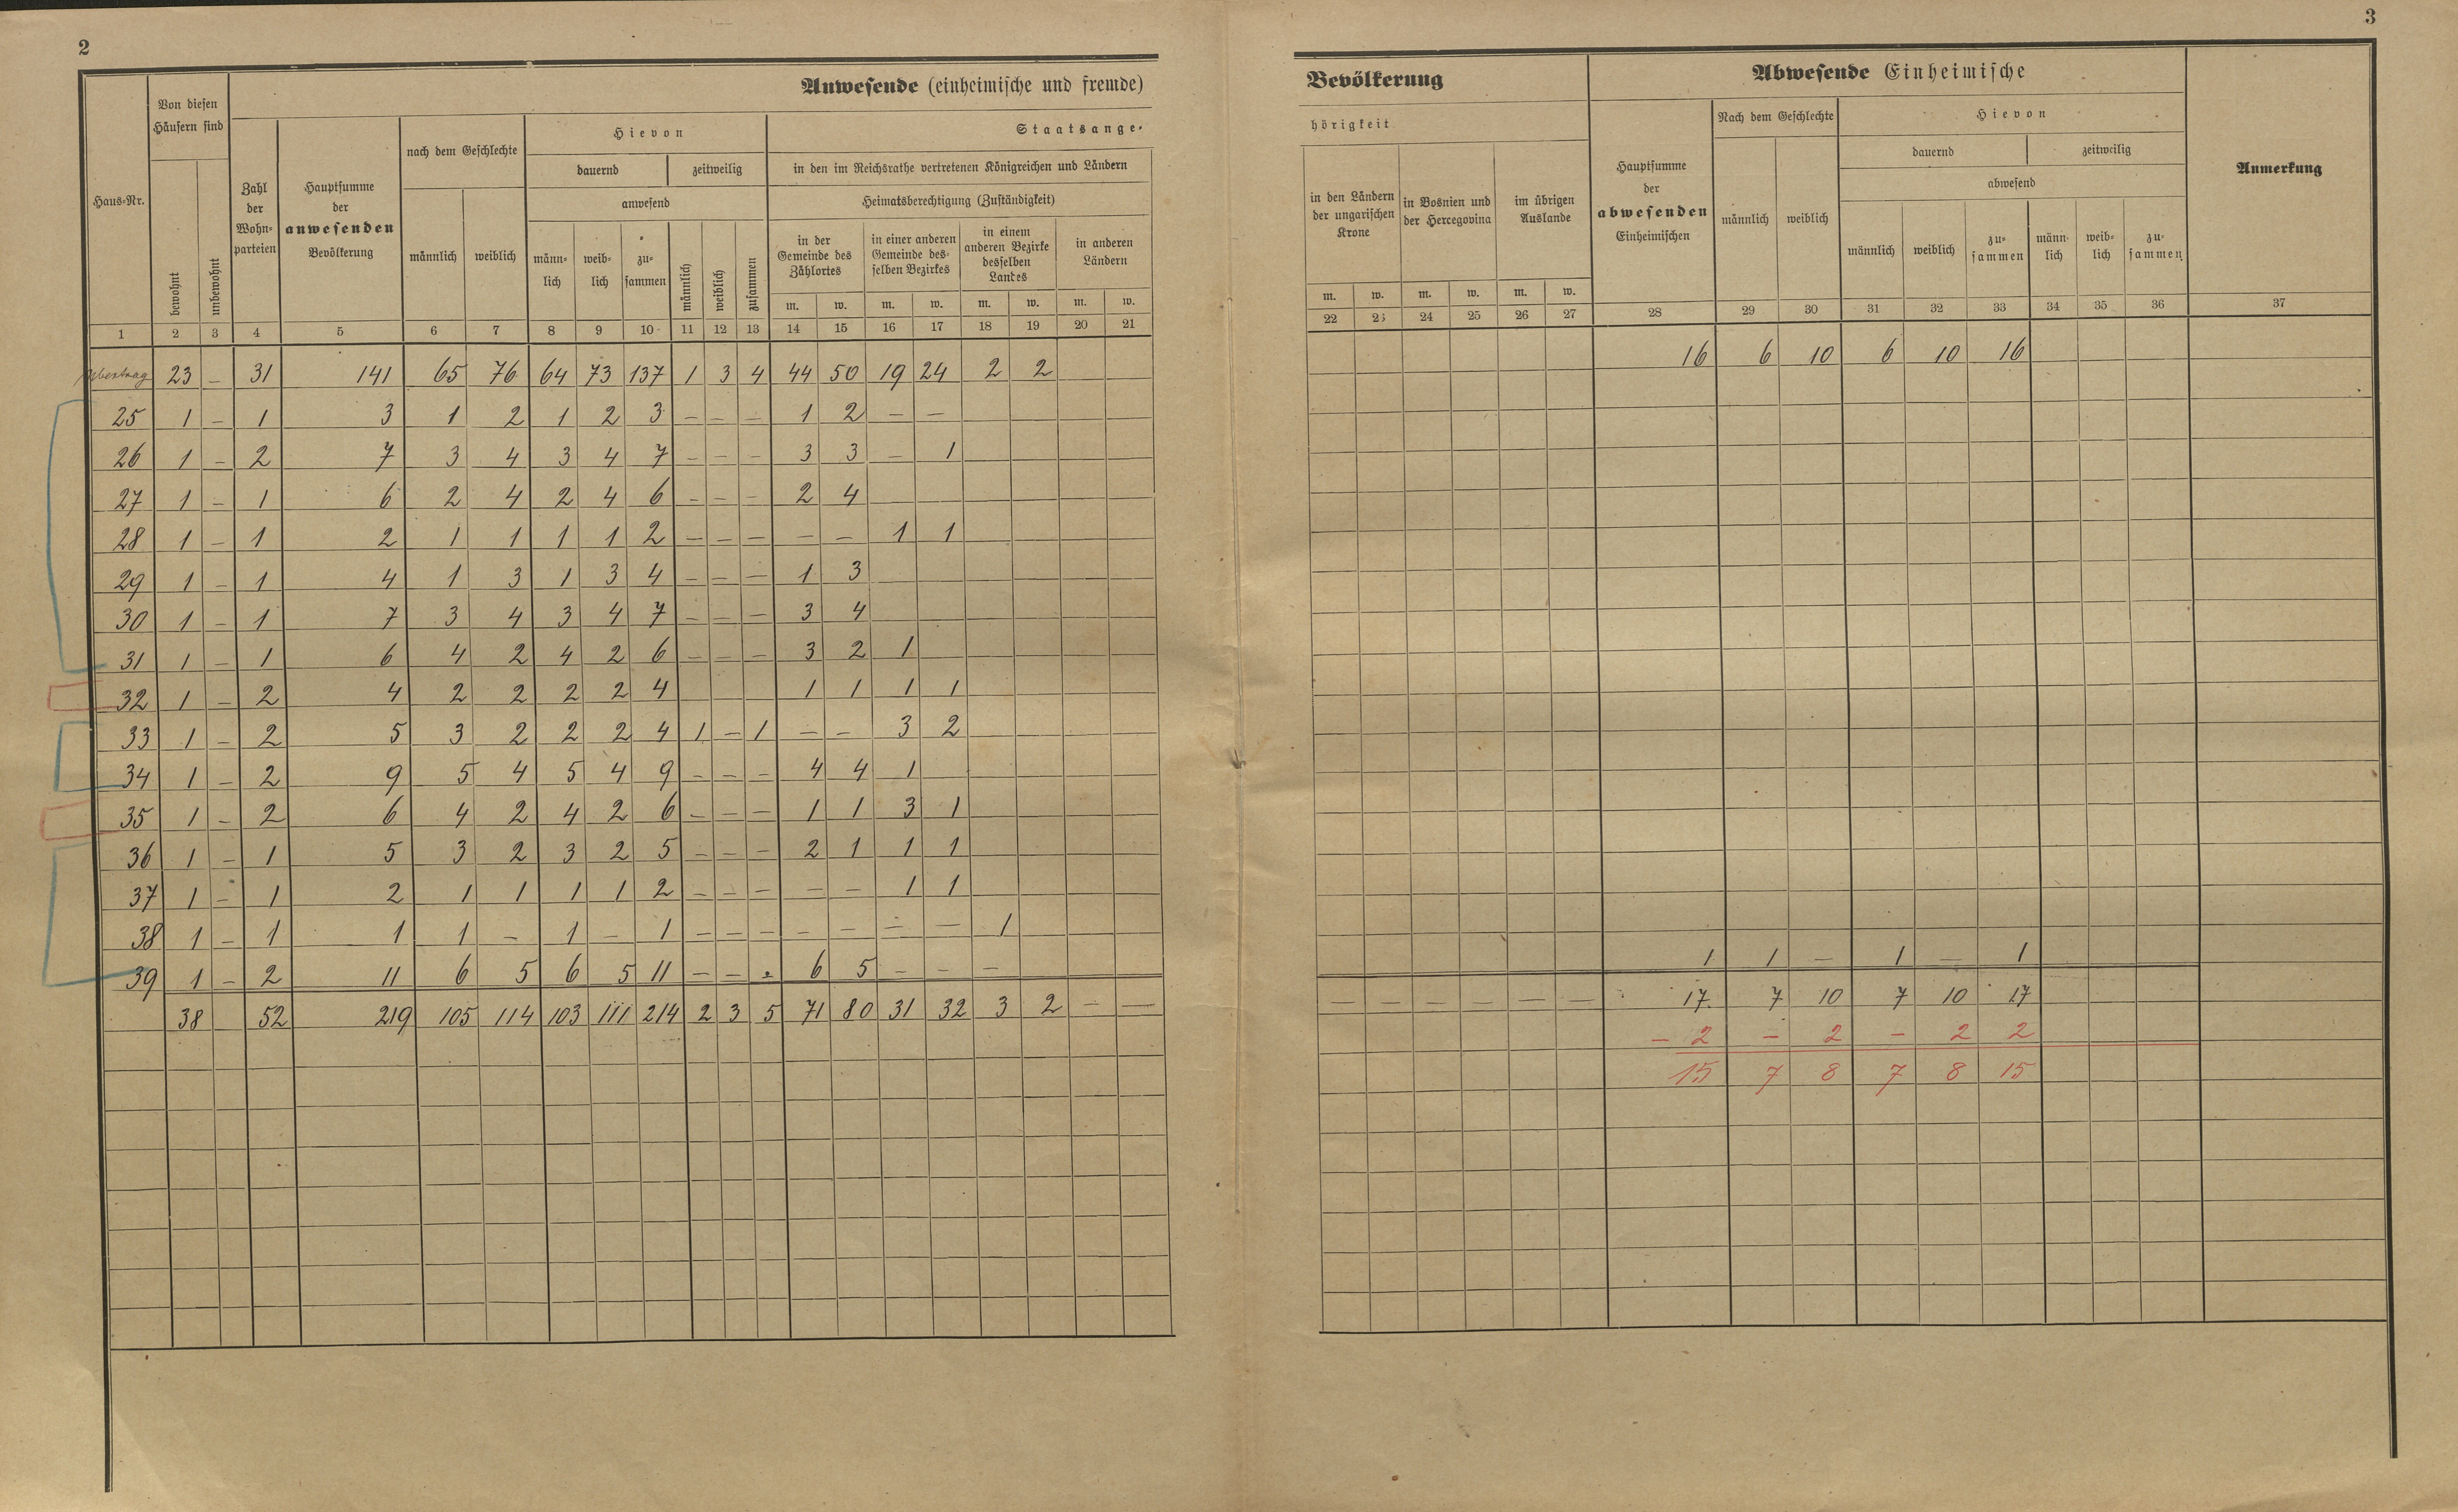 2
Anwesende (einheimische und fremde)
Haus-Nr.
Von diesen
Häusern sind
bewohnt
unbewohnt
Zahl
der
Wohn-
parteien
Hauptsumme
der
anwesenden
Bevölkerung
nach dem Geschlechte
männlich weiblich
Hievon
dauernd zeitweilig
anwesend
männ-
lich
weib-
lich
zu-
sammen
männlich
weiblich
zusammen
Staatsange-
in den im Reichsrathe vertretenen Königreichen und Ländern
Heimatsberechtigung (Zuständigkeit)
in der
Gemeinde des
Zählortes
in einer anderen
Gemeinde des-
selben Bezirkes
in einem
anderen Bezirke
desselben
Landes
in anderen
Ländern
m. w. m. w. m. w. m. w.
1 2 3 4 5 6 7 8 9 10 11 12 13 14 15 16 17 18 19 20 21
Übertrag 23 – 31 141 65 76 64 73 137 1 3 4 44 50 19 24 2 2
25 1 – 1 3 1 2 1 2 3 – – – 1 2 – –
26 1 – 2 7 3 4 3 4 7 – – – 3 3 – 1
27 1 – 1 6 2 4 2 4 6 – – – 2 4
28 1 – 1 2 1 1 1 1 2 – – – – – 1 1
29 1 – 1 4 1 3 1 3 4 – – – 1 3
30 1 – 1 7 3 4 3 4 7 – – – 3 4
31 1 – 1 6 4 2 4 2 6 – – – 3 2 1
32 1 – 2 4 2 2 2 2 4 1 1 1 1
33 1 – 2 5 3 2 2 2 4 1 – 1 – – 3 2
34 1 – 2 9 5 4 5 4 9 – – – 4 4 1
35 1 – 2 6 4 2 4 2 6 – – – 1 1 3 1
36 1 – 1 5 3 2 3 2 5 – – – 2 1 1 1
37 1 – 1 2 1 1 1 1 2 – – – – – 1 1
38 1 – 1 1 1 – 1 – 1 – – – – – – – 1
39 1 – 2 11 6 5 6 5 11 – – – 6 5 – – –
38 52 219 105 114 103 111 214 2 3 5 71 80 31 32 3 2 – –
3
Bevölkerung
hörigkeit
in den Ländern
der ungarischen
Krone
in Bosnien und
der Hercegovina
im übrigen
Auslande
m. w. m. w. m. w.
Abwesende Einheimische
Hauptsumme
der
abwesenden
Einheimischen
Nach dem Geschlechte
männlich weiblich
Hievon
dauernd zeitweilig
abwesend
männlich weiblich
zu-
sammen
männ-
lich
weib-
lich
zu-
sammen
Anmerkung
22 23 24 25 26 27 28 29 30 31 32 33 34 35 36 37
16 6 10 6 10 16
1 1 – 1 – 1
– – – – – – 17 7 10 7 10 17
– 2 – 2 – 2 2
15 7 8 7 8 15